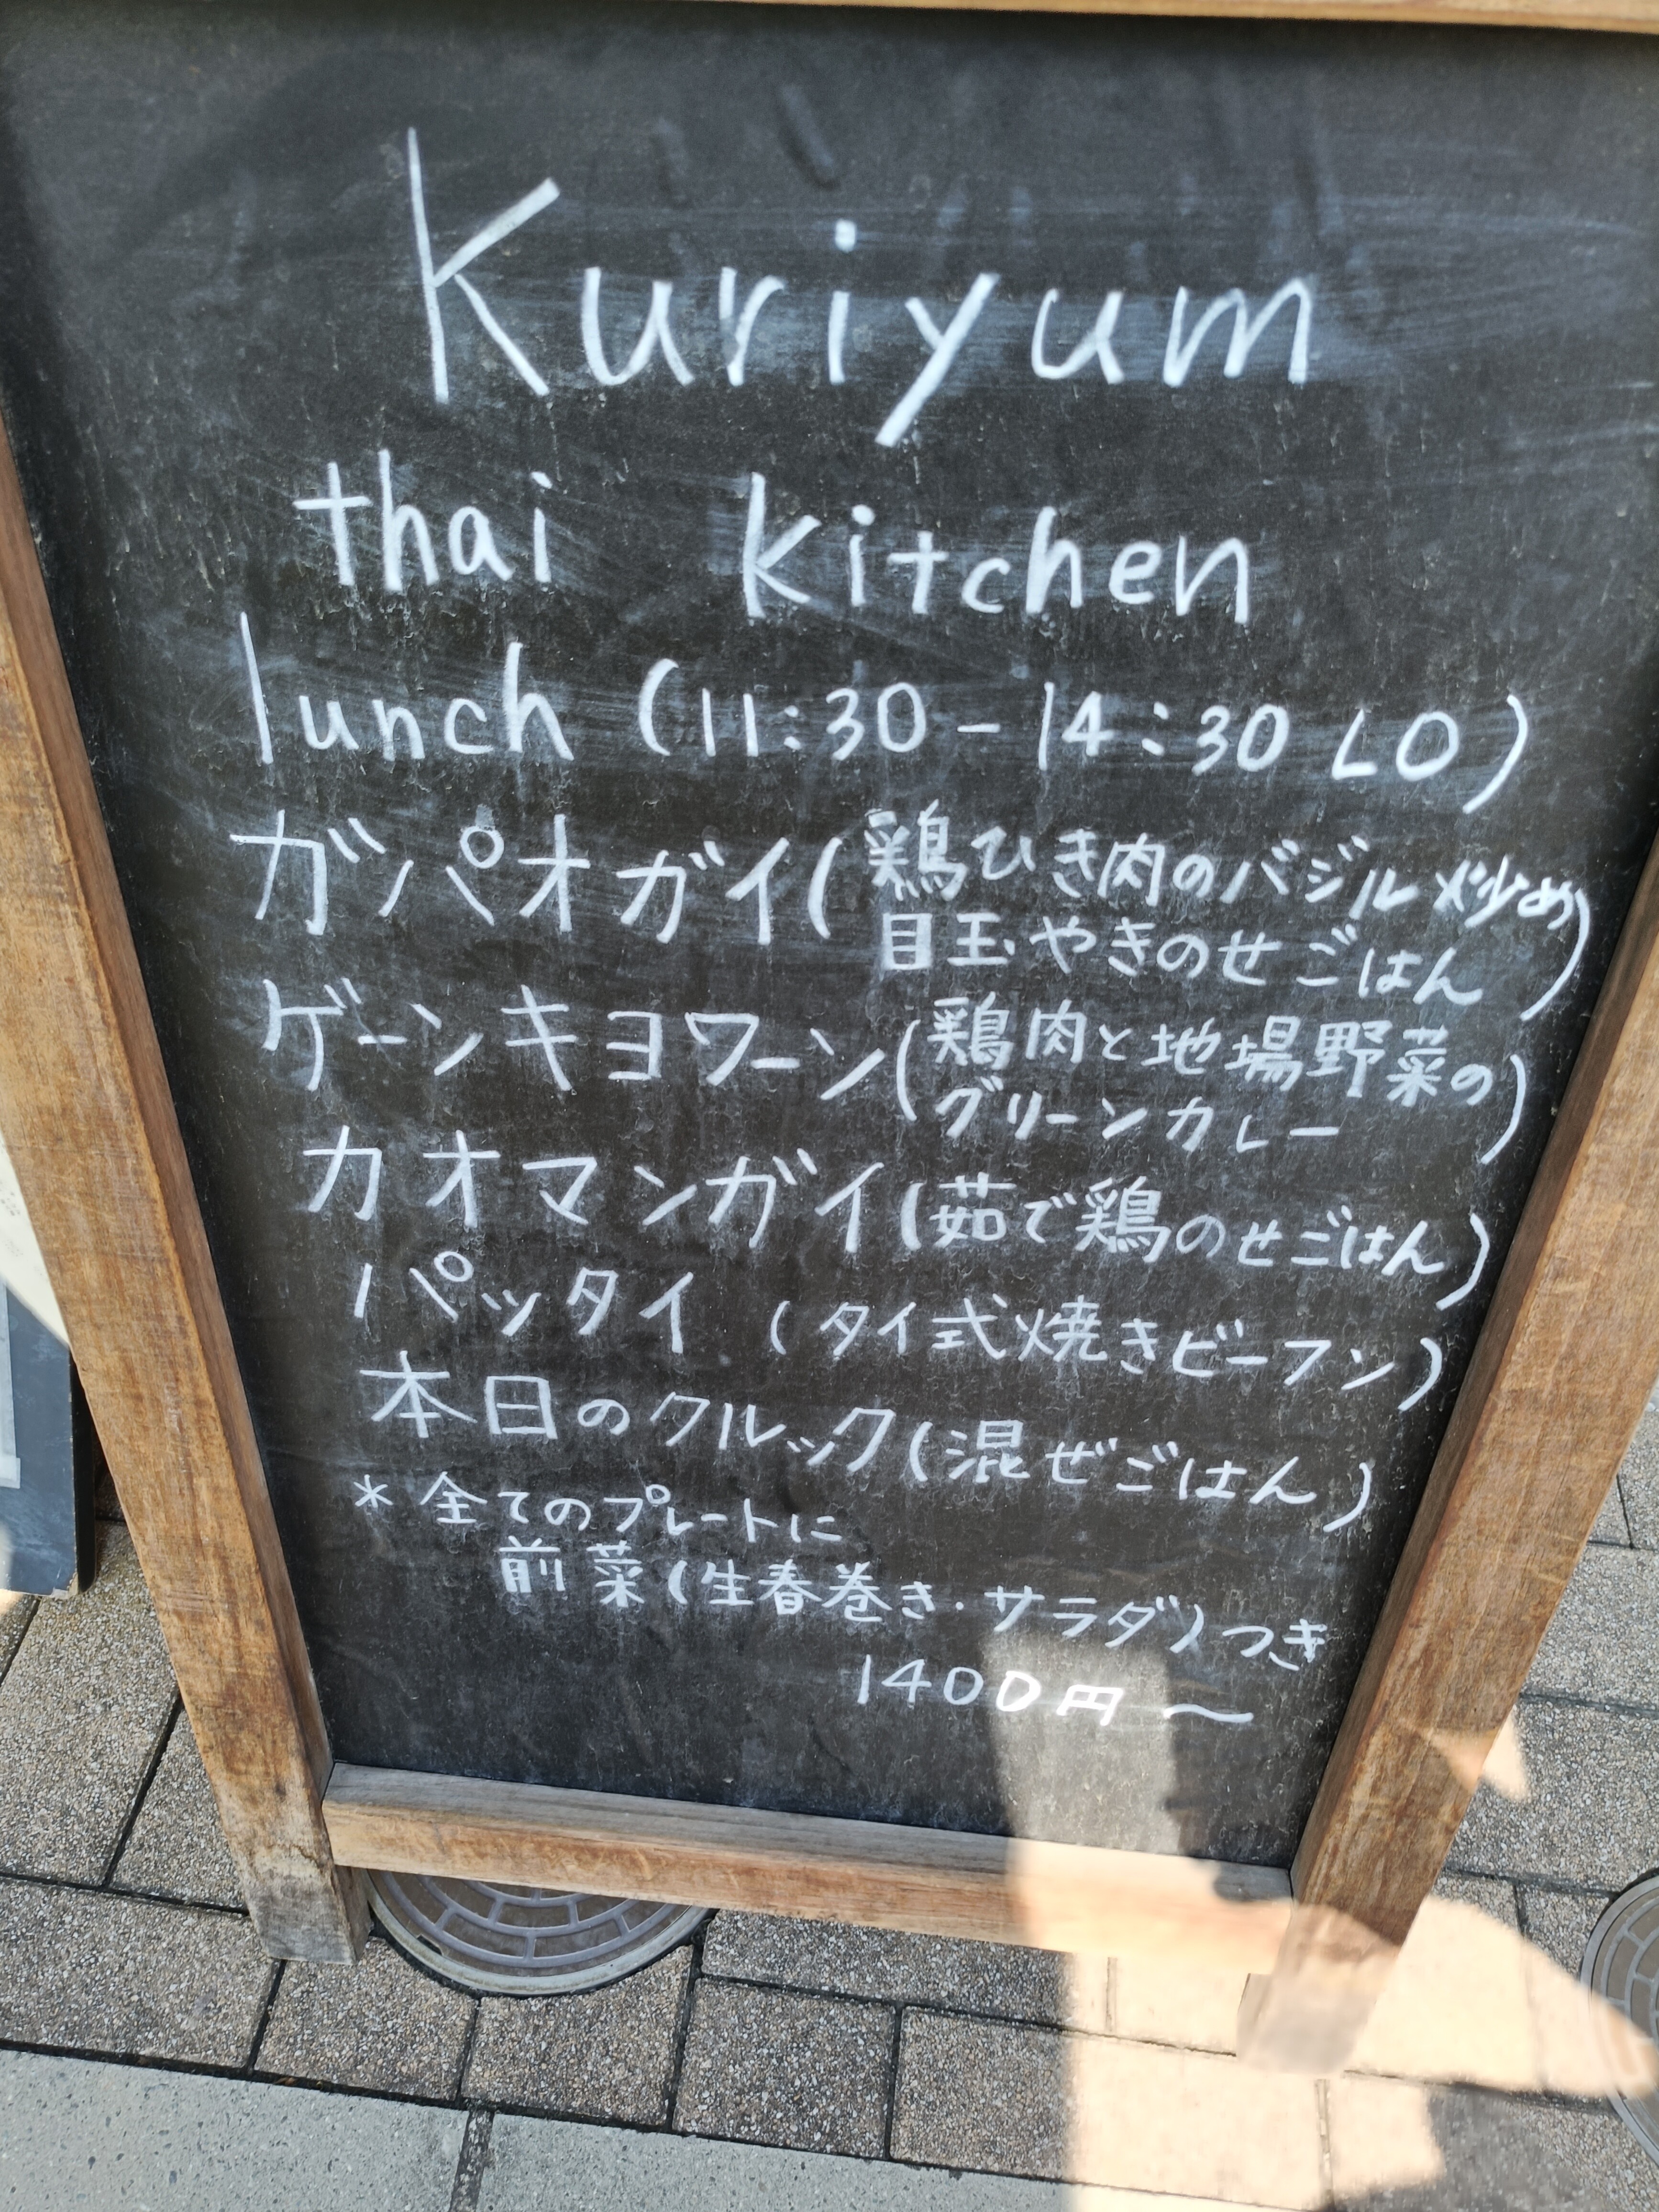 Kuriyum
thai kitchen
lunch (11:30 - 14:30 LO)
ガパオガイ(鶏ひき肉のバジル炒め
目玉やきのせごはん)
ゲーンキヨワーン(鶏肉と地場野菜の
グリーンカレー)
カオマンガイ(茹で鶏のせごはん)
パッタイ (タイ式焼きビーフン)
本日のクルック(混ぜごはん)
* 全てのプレートに
前菜(生春巻き・サラダ)つき
1400円〜